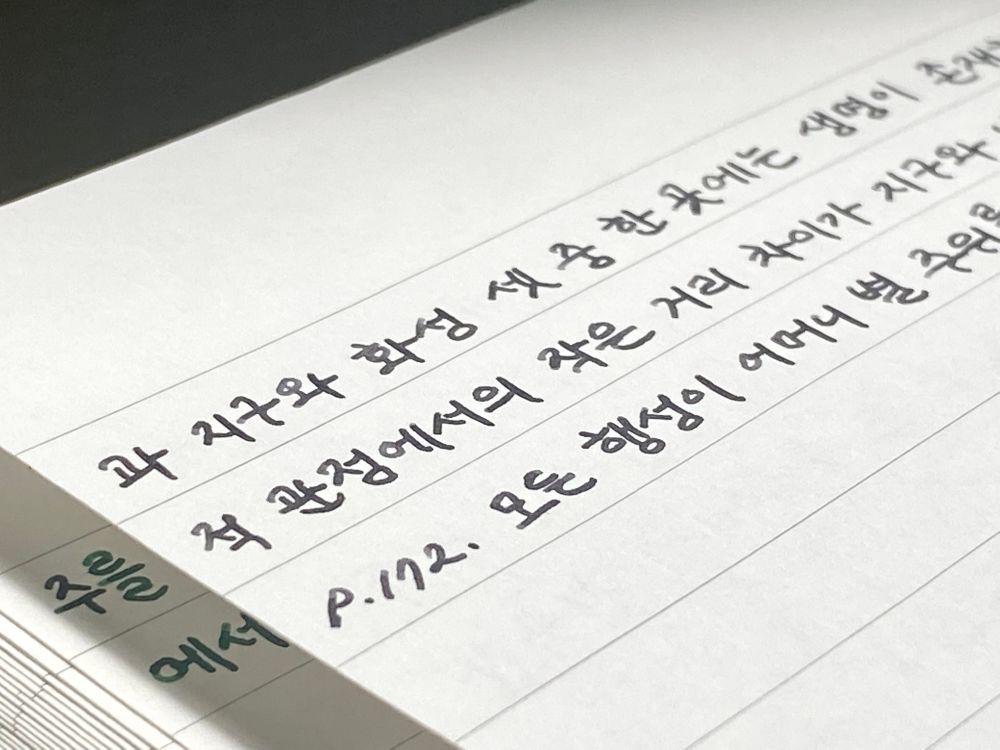 과 지구와 화성 셋 중 한 곳에는 생명이 존재
적 관점에서의 작은 거리 차이가 지구와
p.172. 모든 행성이 어머니 별 주위를
주를
에서